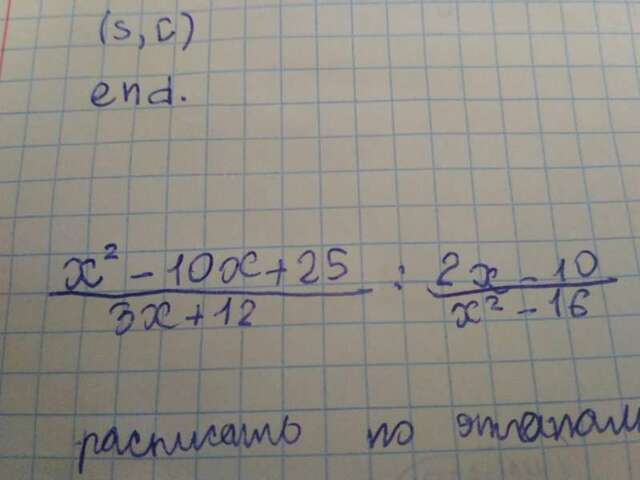 (s, c)
end.
x² - 10x + 25 : 2x - 10
3x + 12 x² - 16
расписать по этапам